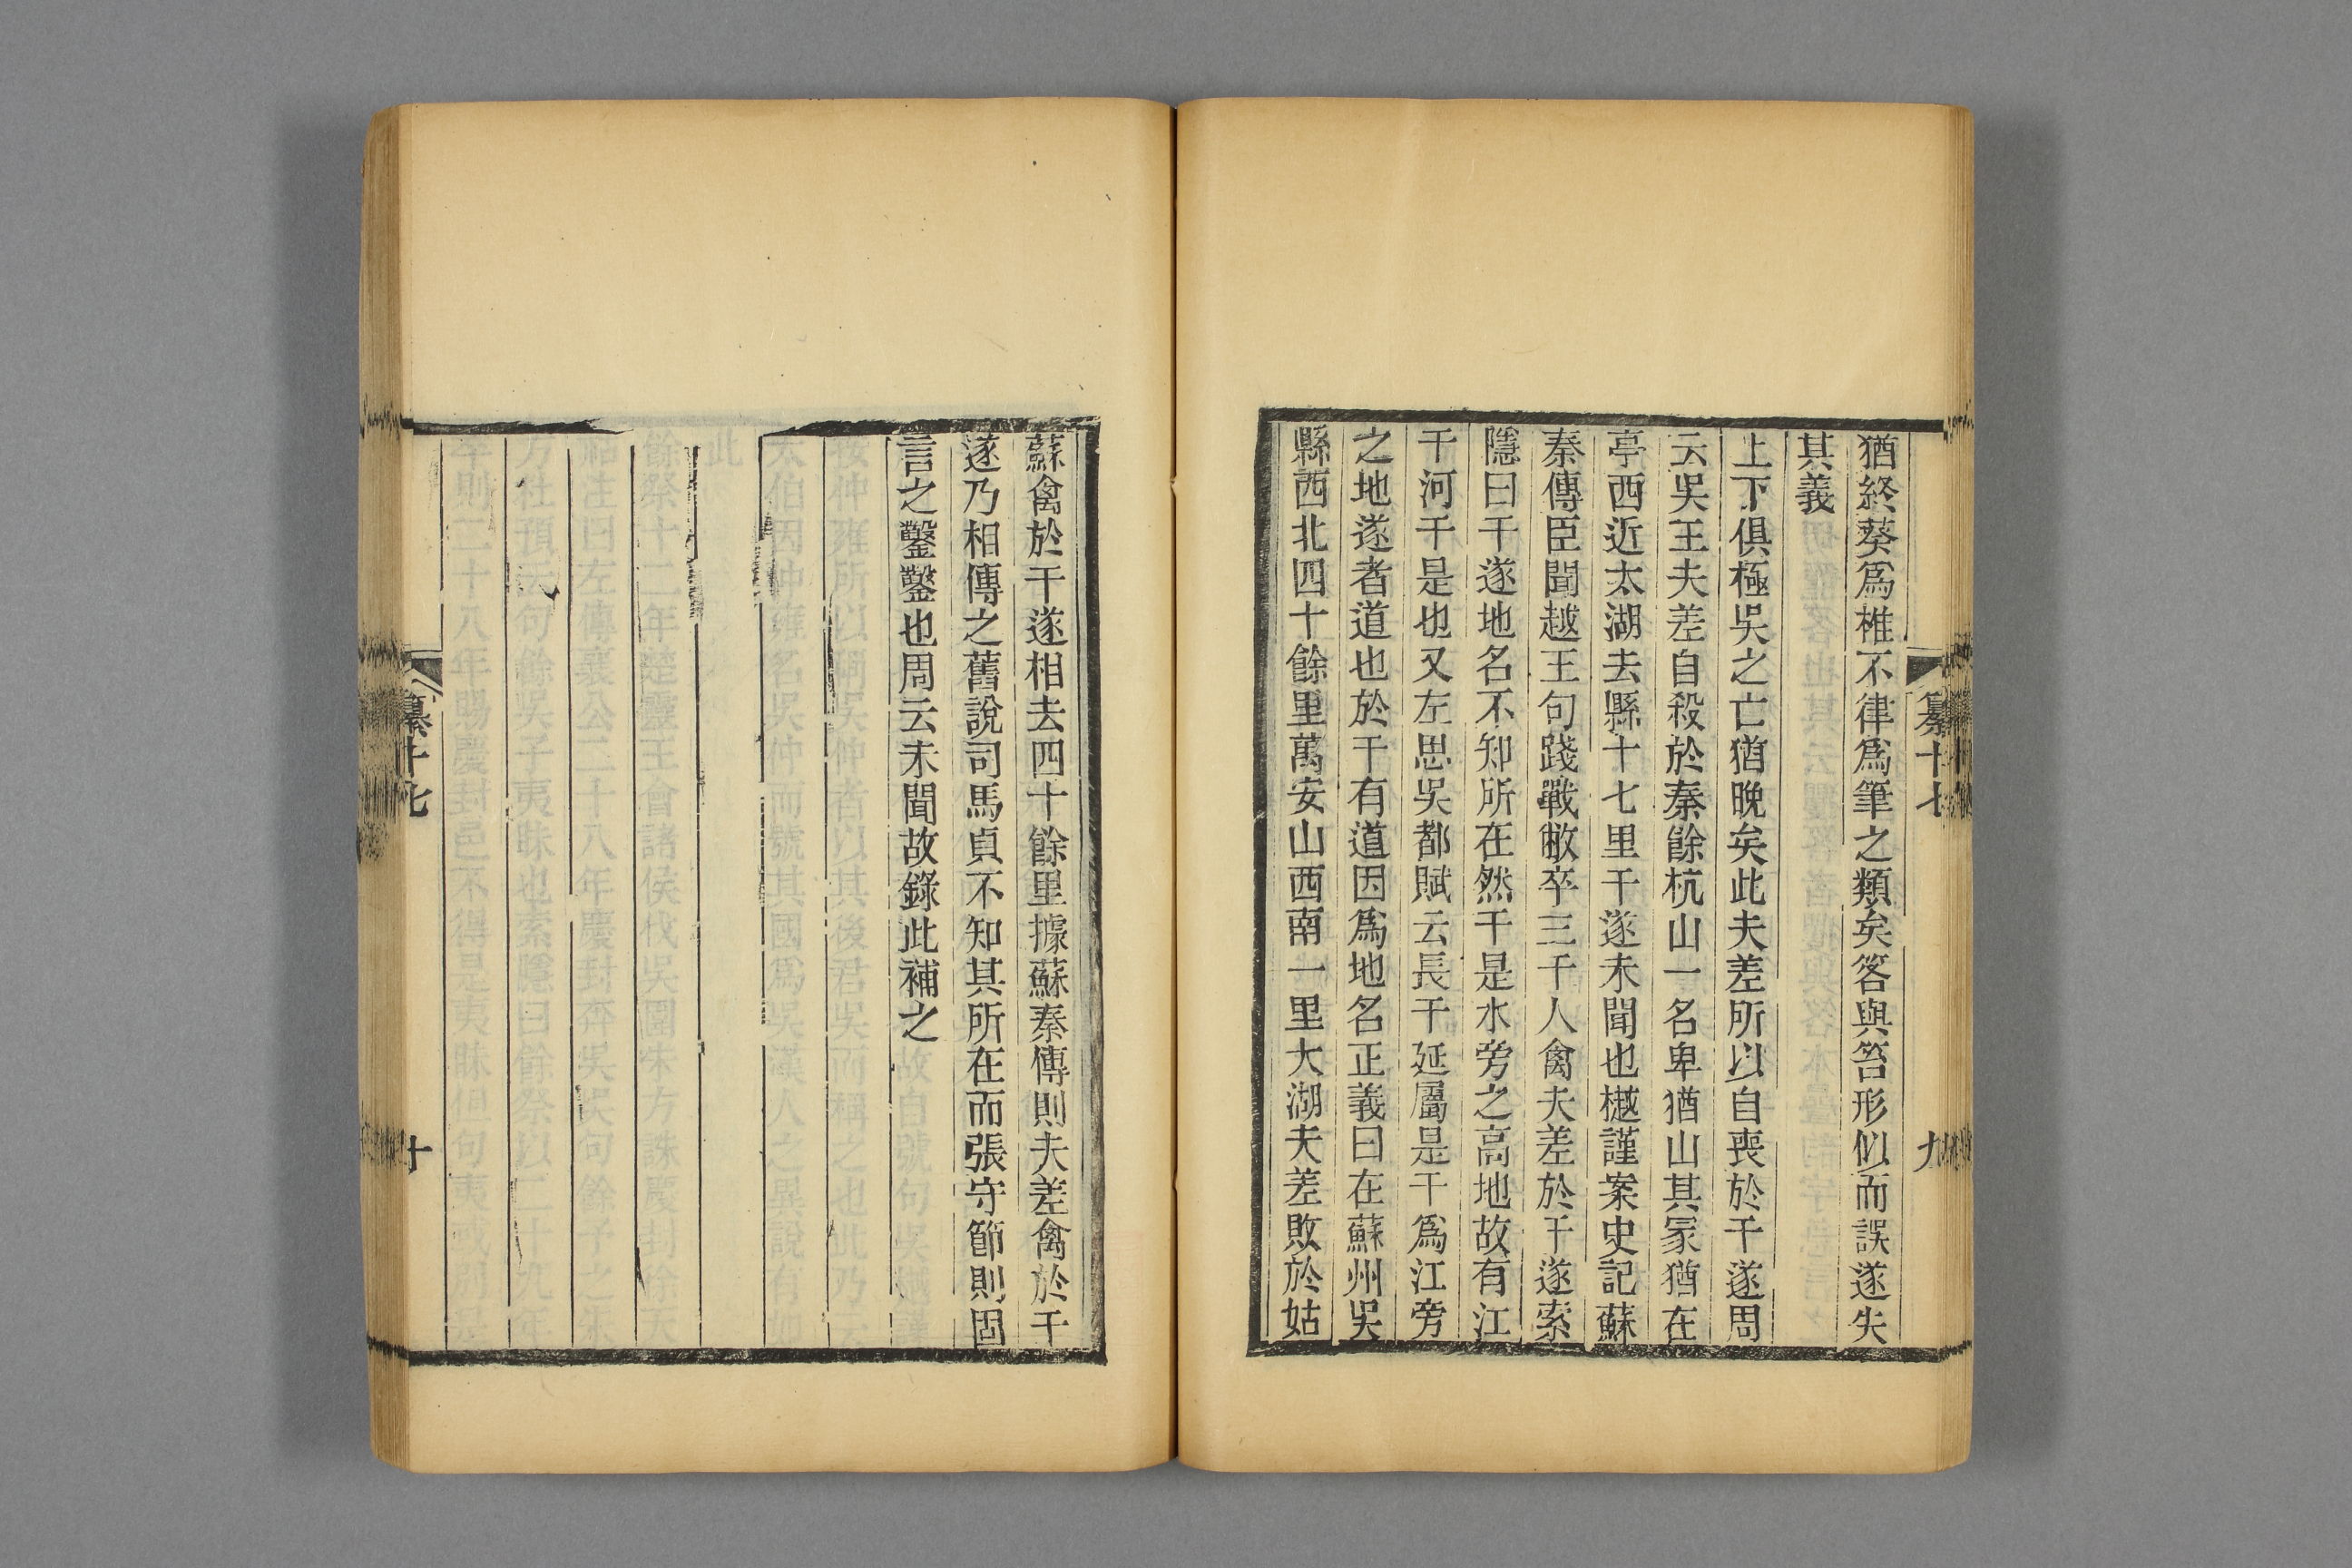 纂十七
九
猶終葵爲椎不律爲筆之類矣筞與笞形似而誤遂失
其義
上下俱極吳之亡猶晚矣此夫差所以自喪於干遂周
云吳王夫差自殺於秦餘杭山一名卑猶山其冢猶在
亭西近太湖去縣十七里干遂未聞也樾謹案史記蘇
秦傳臣聞越王句踐戰敝卒三千人禽夫差於干遂索
隱曰干遂地名不知所在然干是水旁之高地故有江
干河干是也又左思吳都賦云長干延屬是干爲江旁
之地遂者道也於干有道因爲地名正義曰在蘇州吳
縣西北四十餘里萬安山西南一里大湖夫差敗於姑
蘇禽於干遂相去四十餘里據蘇秦傳則夫差禽於干
遂乃相傳之舊說司馬貞不知其所在而張守節則固
言之鑿鑿也周云未聞故錄此補之
纂十七
十